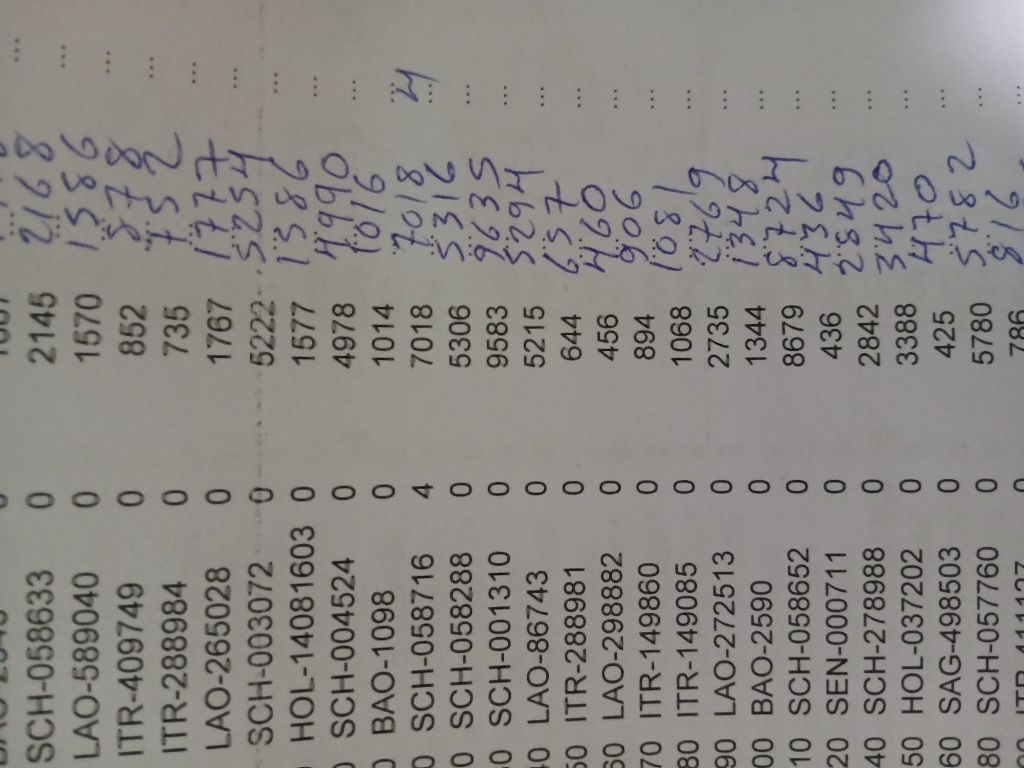 SCH-058633 0 2145 2168 ...
LAO-589040 0 1570 1586 ...
ITR-409749 0 852 878 ...
ITR-288984 0 735 752 ...
LAO-265028 0 1767 1777 ...
SCH-003072 0 5222 5254 ...
HOL-14081603 0 1577 1386 ...
0 SCH-004524 0 4978 4990 ...
0 BAO-1098 0 1014 1016 ...
0 SCH-058716 4 7018 7018 4
0 SCH-058288 0 5306 5316 ...
0 SCH-001310 0 9583 9635 ...
40 LAO-86743 0 5215 5294 ...
50 ITR-288981 0 644 657 ...
60 LAO-298882 0 456 460 ...
70 ITR-149860 0 894 906 ...
80 ITR-149085 0 1068 1081 ...
90 LAO-272513 0 2735 2769 ...
00 BAO-2590 0 1344 1348 ...
10 SCH-058652 0 8679 8724 ...
20 SEN-000711 0 436 436 ...
40 SCH-278988 0 2842 2849 ...
50 HOL-037202 0 3388 3420 ...
60 SAG-498503 0 425 470 ...
80 SCH-057760 0 5780 5782 ...
786 816